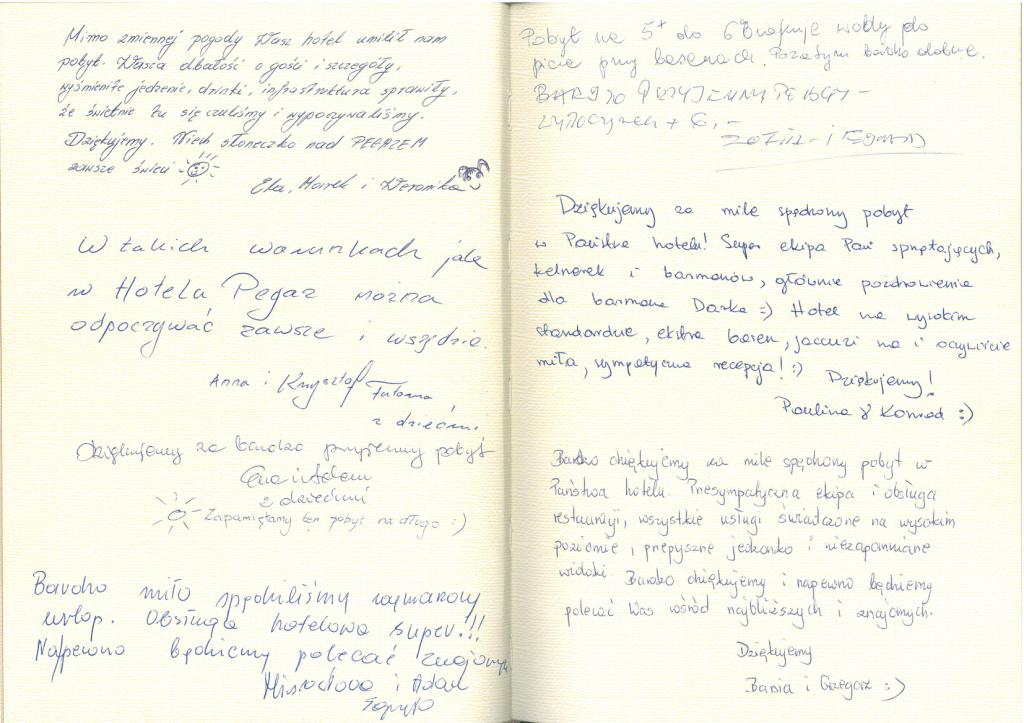 Mimo zmiennej pogody Wasz hotel umilił nam
pobyt. Wasza dbałość o gości i szczegóły,
wyśmienite jedzenie, drinki, infrastruktura sprawiły,
że świetnie tu się czuliśmy i wypoczywaliśmy.
Dziękujemy. Niech słoneczko nad PEGAZEM
zawsze świeci
Ela, Marek i Weronika
W takich warunkach jak
w Hotelu Pegaz można
odpoczywać zawsze i wszędzie.
Anna i Krzysztof
z dziećmi
Dziękujemy za bardzo przyjemny pobyt
Ewa i Adam
z dziećmi
Zapamiętamy ten pobyt na długo :)
Bardzo miło spędziliśmy wymarzony
urlop. Obsługa hotelowa super!!!
Napewno będziemy polecać znajomym
i Adam
Pobyt na 5+ do 6 brakuje wody do
picia przy basenach. Pozatym bardzo dobrze.
BARDZO PRZYJEMNY POBYT -
wypoczynek + 6,-
ZOFIA i
Dziękujemy za mile spędzony pobyt
w Państwa hotelu! Super ekipa Pań sprzątających,
kelnerek i barmanów, głównie pozdrowienia
dla barmana Darka :) Hotel na wysokim
standardzie, ekstra basen, jaccuzi no i oczywiście
miła, sympatyczna recepcja! :)
Dziękujemy!
Paulina & Konrad :)
Bardzo dziękujemy za mile spędzony pobyt w
Państwa hotelu. Przesympatyczna ekipa i obsługa
restauracji, wszystkie usługi świadczone na wysokim
poziomie, przepyszne jedzonko i niezapomniane
widoki. Bardzo dziękujemy i napewno będziemy
polecać Was wśród najbliższych i znajomych.
Dziękujemy
Basia i Grzegorz :)